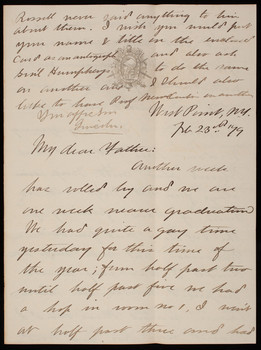 Russell never said anything to him
about them. I wish you would put
your name & title on the enclosed
Card as an autograph and also ask
Genl Humphreys to do the same
on another and I should also
like to have Prof Newcomb's on another
Your affec. Son
West Point, N.Y.
Feb. 23rd 1879
My dear Father:
Another week
has rolled by and we are
one week nearer graduation
We had quite a gay time
yesterday for this time of
the year; from half past two
until half past five we had
a hop in room no 1, I went
at half past three and had